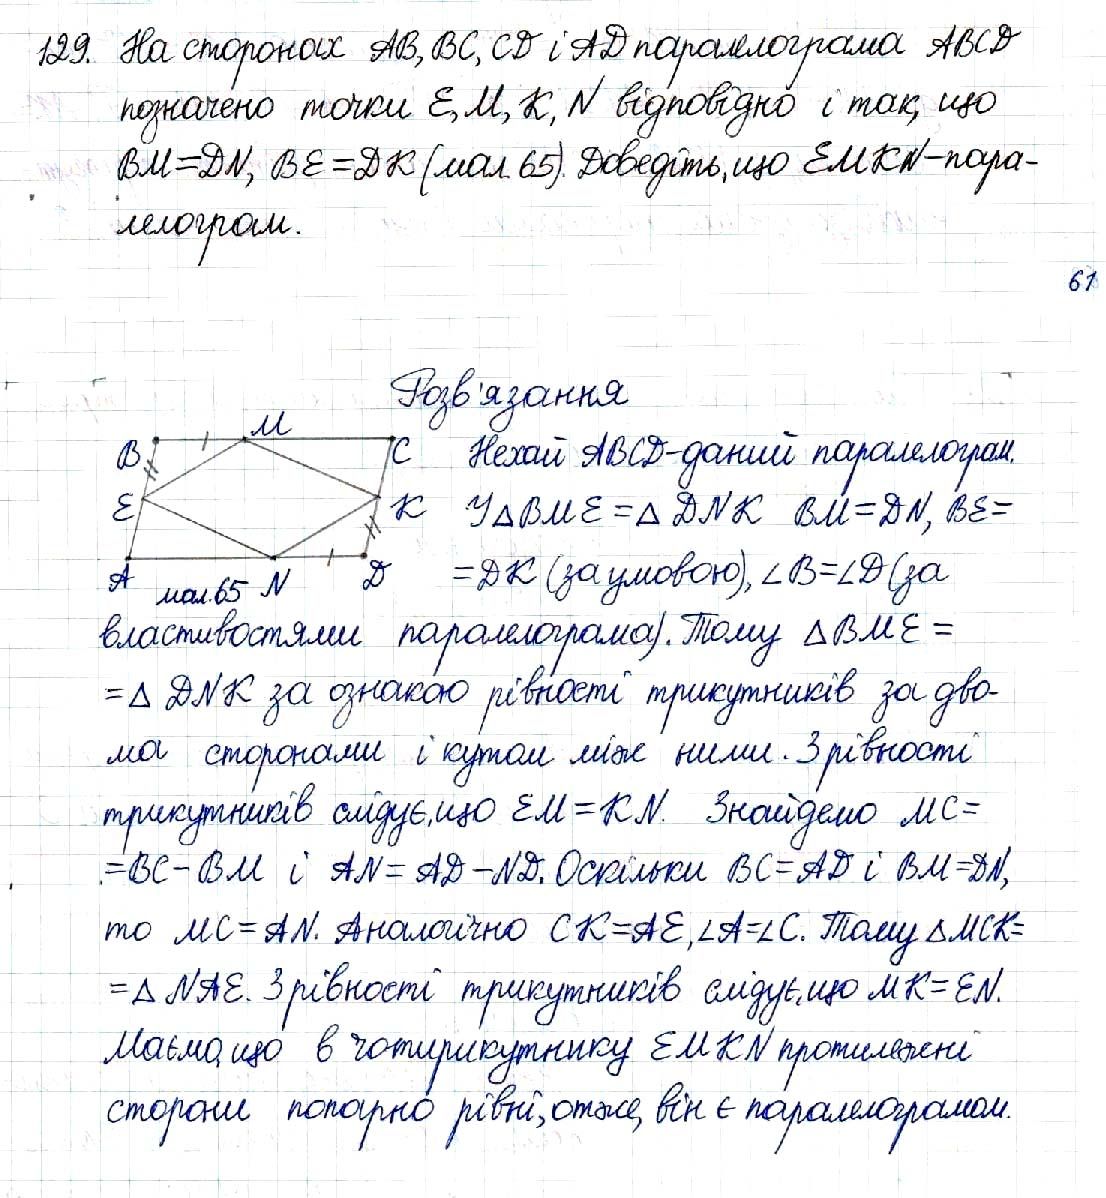 129. На сторонах AB, BC, CD і AD паралелограма ABCD
позначено точки E, M, K, N відповідно і так, що
BM=DN, BE=DK (мал. 65). Доведіть, що EMKN-пара-
лелограм.
61
Розв'язання
M
B
C
E
K
A
мал. 65
N
D
Нехай ABCD-даний паралелограм.
У △BME=△DNK BM=DN, BE=
=DK (за умовою), ∠B=∠D (за
властивостями паралелограма). Тому △BME=
=△DNK за ознакою рівності трикутників за дво-
ма сторонами і кутом між ними. З рівності
трикутників слідує, що EM=KN. Знайдемо MC=
=BC-BM і AN=AD-ND. Оскільки BC=AD і BM=DN,
то MC=AN. Аналогічно CK=AE, ∠A=∠C. Тому △MCK=
=△NAE. З рівності трикутників слідує, що MK=EN.
Маємо, що в чотирикутнику EMKN протилежні
сторони попарно рівні, отже, він є паралелограмом.